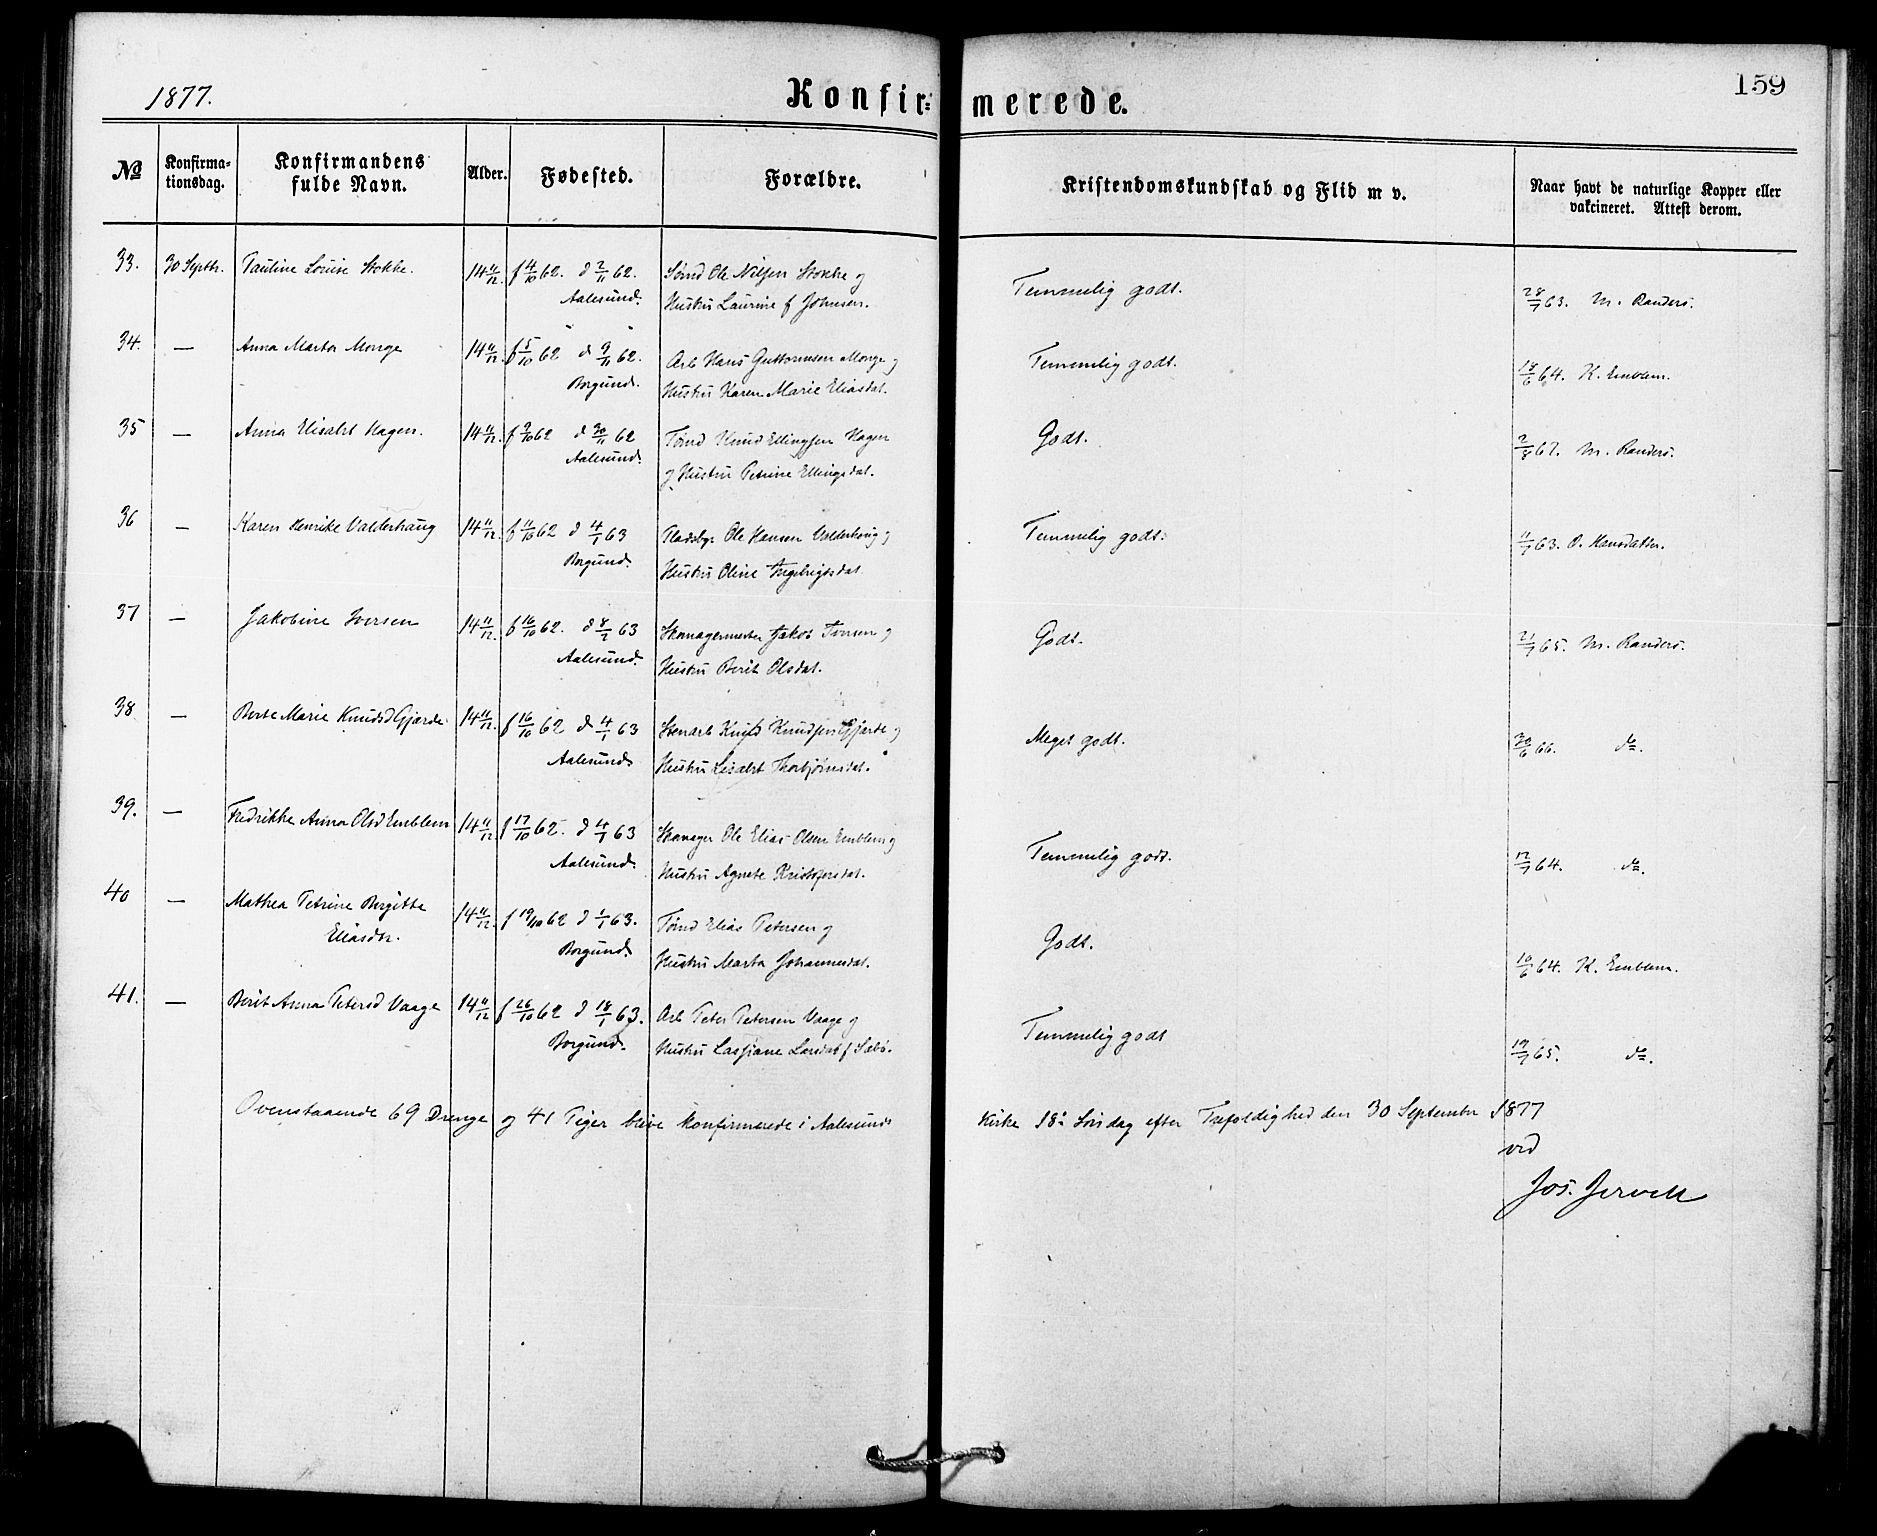 1877.
Konfir=merede.
159
№
Konfirma-
tionsdag.
Konfirmandens
fulde Navn.
Alder.
Fødested.
Forældre.
Kristendomskundskab og Flid m v.
Naar havt de naturlige Kopper eller
vakcineret. Attest derom.
33. 30 Septbr. Pauline Louise Stokke. 14 11/12. f 4/10 62. d 2/11 62. Sømd Ole Nilsen Stokke og
Aalesund. Hustru Laurine f Johnsen. Temmelig godt. 28/7 63. M. Randers.
34. — Anna Marta Monge 14 11/12. f 5/10 62 d 9/11 62. Arb Hans Guttormsen Monge og
Borgund. Hustru Karen Marie Eliasdat. Temmelig godt. 18/6 64. K. Emblem.
35 — Anna Elisabt Hagen. 14 11/12. f 9/10 62 d 30/11 62 Tømd Knud Ellingsen Hagen
Aalesund. og Hustru Petrine Ellingsdat. Godt. 2/8 67. M. Randers.
36 — Karen Henrike Valderhaug 14 11/12. f 11/10 62 d 4/1 63 Pladsbr Ole Hansen Valderhaug og
Borgund. Hustru Oline Ingebrigtsdat. Temmelig godt. 11/7 63. O. Hansdatter.
37 — Jakobine Iversen 14 11/12. f 16/10 62. d 8/2 63 Skomagermester Jakob Iversen og
Aalesund. Hustru Berit Olsdat. Godt. 21/7 65. M. Randers.
38 — Berte Marie Knudsd Gjærde. 14 11/12. f 16/10 62 d 4/1 63 Stenarb Knud Knudsen Gjærde og
Aalesund. Hustru Lisabt Thorbjørnsdat. Meget godt. 30/6 66. do.
39. — Fredrikke Anna Olsd Emblem 14 11/12 f 17/10 62. d 4/1 63 Skomager Ole Elias Olsen Emblem og
Aalesund. Hustru Agnete Kristofersdat. Temmelig godt. 12/7 64. do.
40 — Mathea Petrine Bergitte 14 11/12. f 19/10 62 d 1/1 63. Tømd Elias Petersen og
Eliasdtr. Borgund. Hustru Marta Johannesdat. Godt. 10/6 64. K. Emblem.
41. — Berit Anna Petersd Vaage 14 11/12 f 26/10 62 d 18/1 63. Arb Peter Petersen Vaage og
Borgund. Hustru Lassiane Larsdat f Sæbø. Temmelig godt 19/7 65. do.
Ovenstaaende 69 Drenge og 41 Piger bleve konfirmerede i Aalesunds Kirke 18de Søndag efter Trefoldighed den 30 September 1877
ved
Jos. Jervell